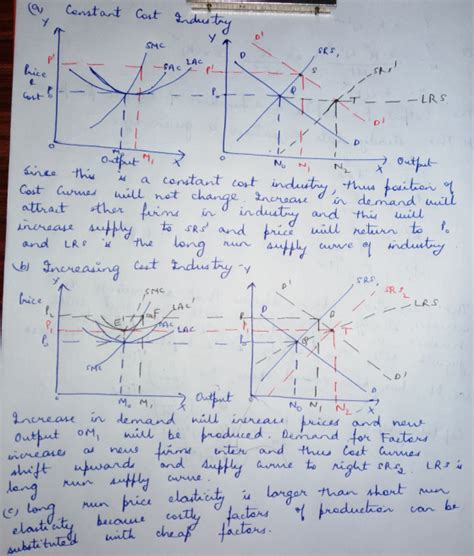 (a) Constant Cost Industry
Y Y
SMC D' SRS,
P' SAC LAC P' S SRS'
Price D
& P₀ P₀ Q T LRS
Cost
D D'
O M₀ M₁ X O N₀ N₁ N₂ X
Output Output
Since this is a constant cost industry, thus position of
Cost Curves will not change Increase in demand will
attract other firms in industry and this will
increase supply to SRS' and price will return to P₀
and LRS is the long run supply curve of industry
(b) Increasing Cost Industry
Y Y
SMC LAC' SRS, SRS₂
Price D' LRS
P₂ E' F D P
P₁ LAC T
P₀ Q
SMC D' D
O M₀ M₁ X O N₀ N₁ N₂ X
Output Output
Increase in demand will increase prices and new
Output OM, will be produced. Demand for Factors
increases as new firms inter and thus Cost Curves
shift upwards and supply curve to right SRS₂. LRS is
long run supply curve.
(c) Long run price elasticity is larger than short run
elasticity because costly factors of production can be
substituted with cheap factors.